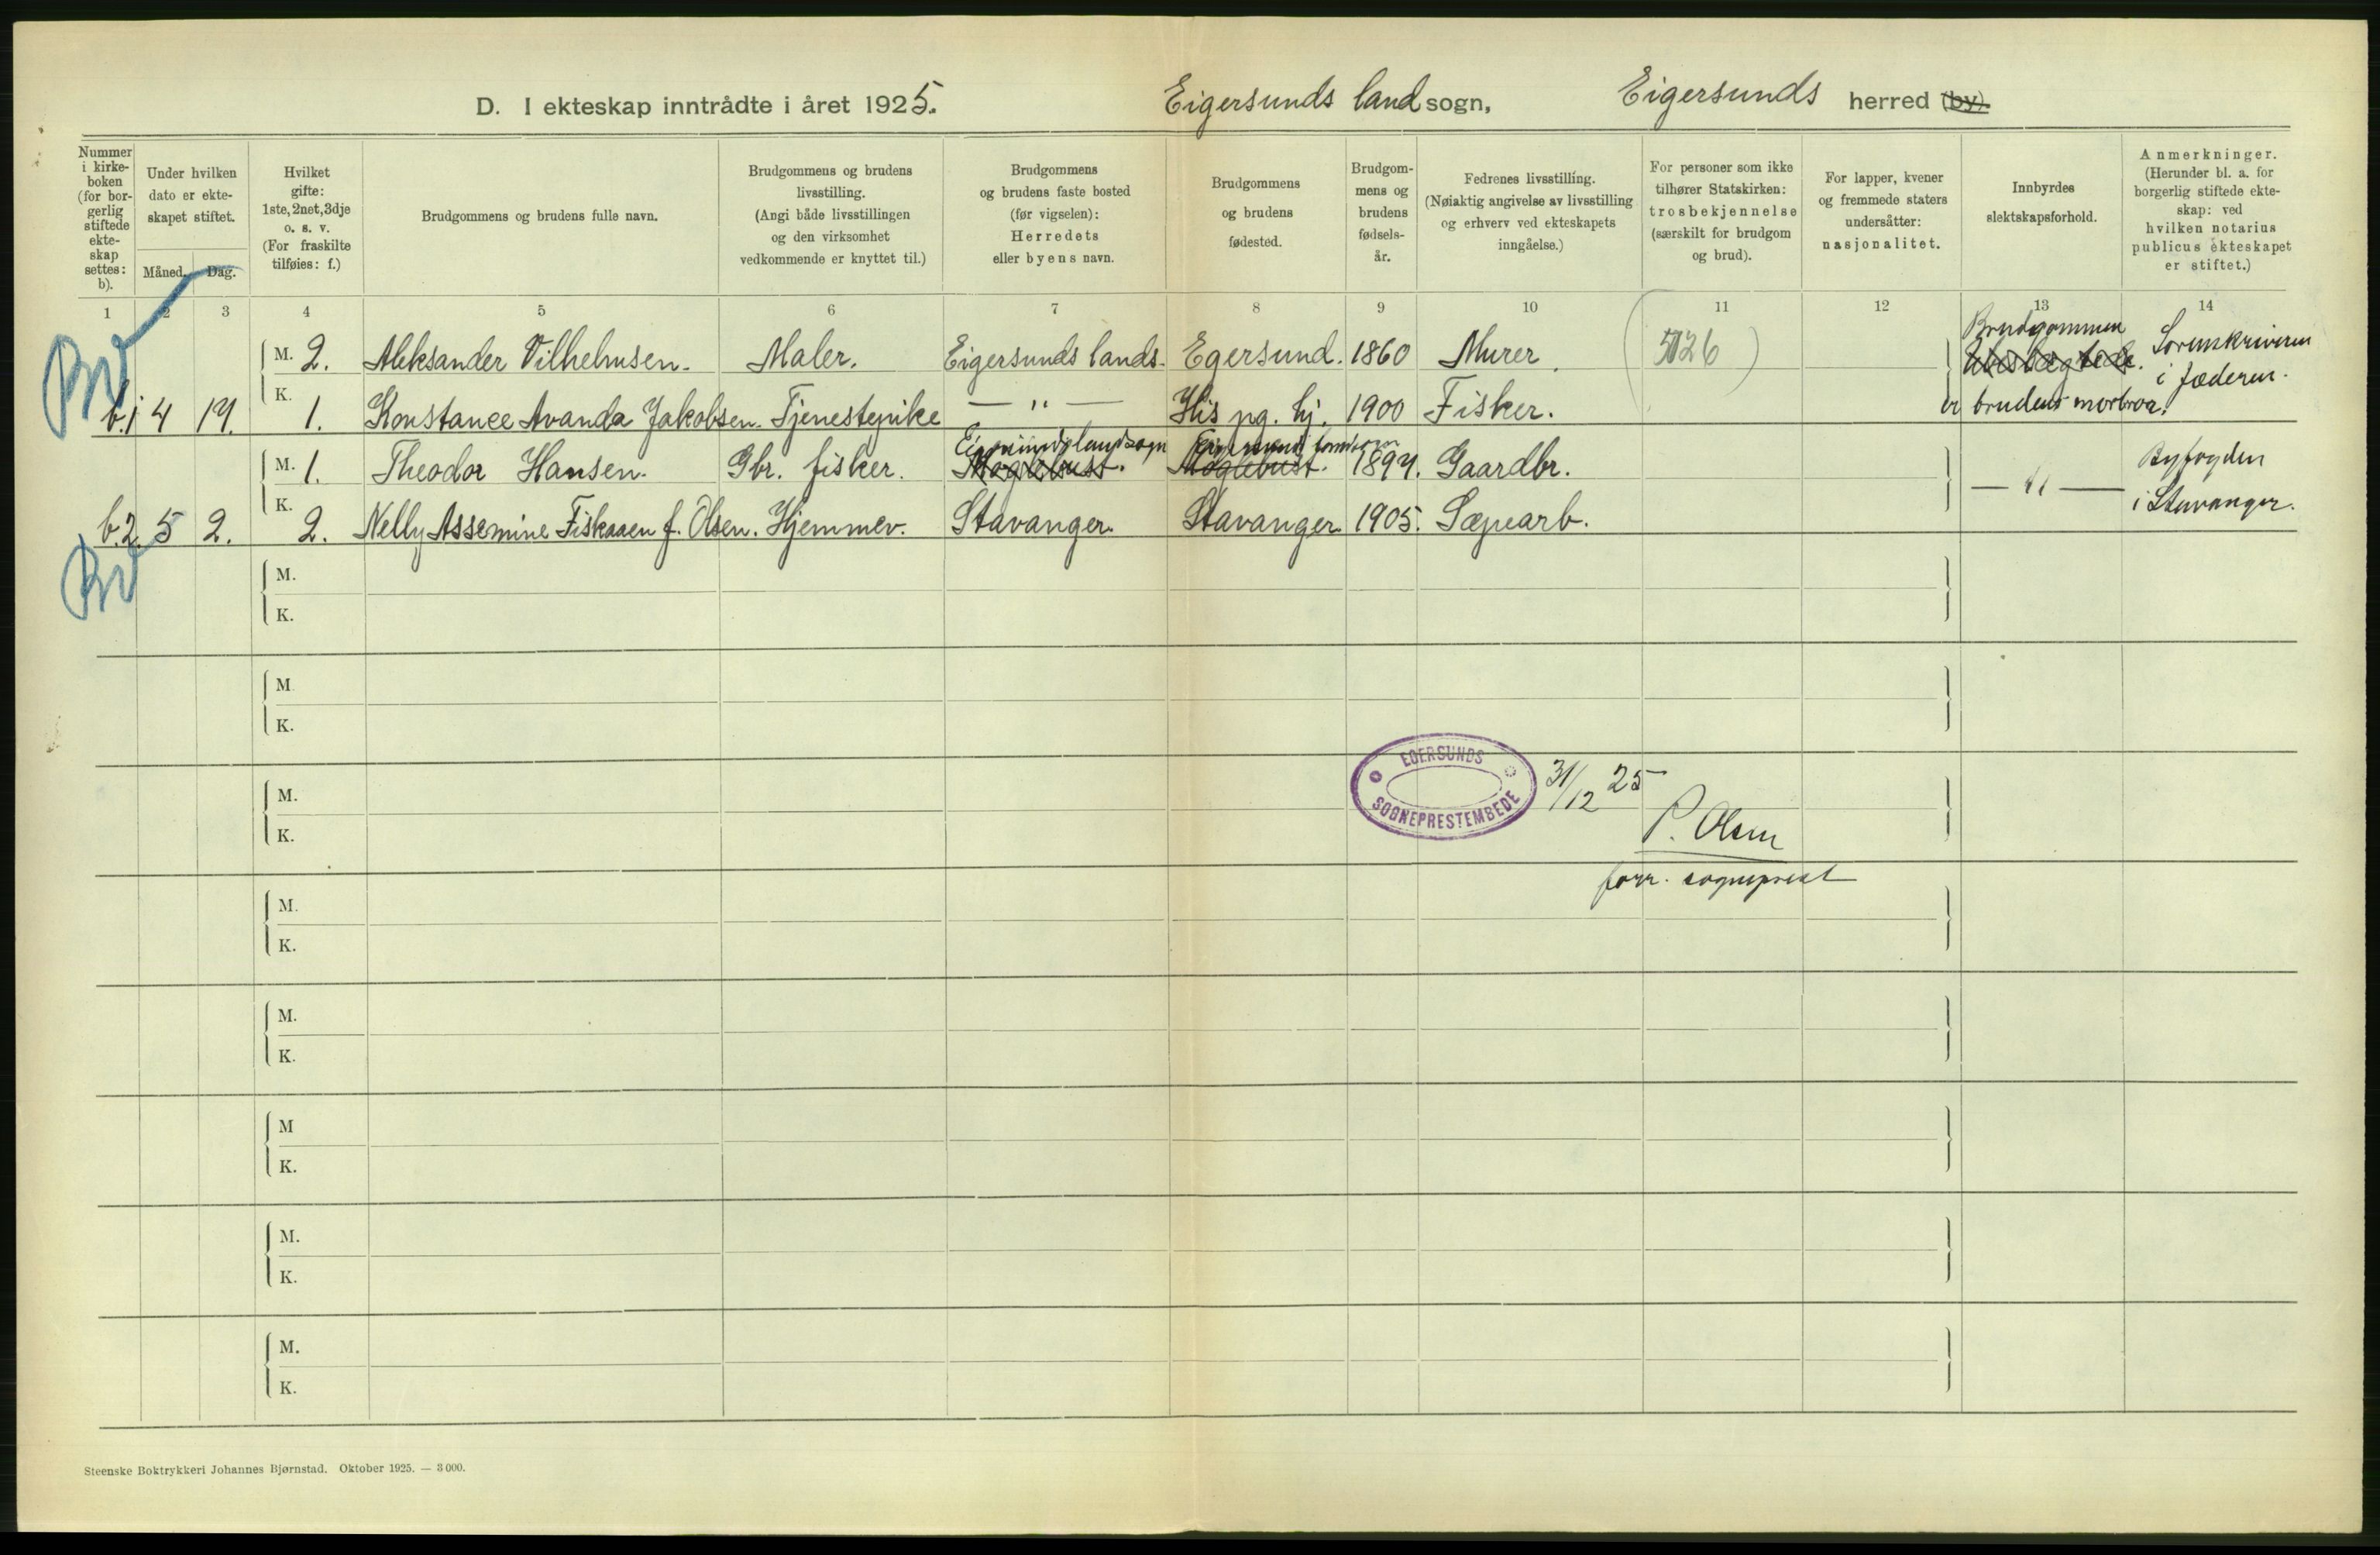 D. I ekteskap inntrådte i året 1925. Eigersunds land sogn, Eigersunds herred (by).
Nummer i kirkeboken (for borgerlig stiftede ekteskap settes: b).
Under hvilken dato er ekteskapet stiftet.
Måned. Dag.
Hvilket gifte: 1ste, 2net, 3dje o. s. v. (For fraskilte tilføies: f.)
Brudgommens og brudens fulle navn.
Brudgommens og brudens livsstilling. (Angi både livsstillingen og den virksomhet vedkommende er knyttet til.)
Brudgommens og brudens faste bosted (før vigselen): Herredets eller byens navn.
Brudgommens og brudens fødested.
Brudgommens og brudens fødselsår.
Fedrenes livsstilling. (Nøiaktig angivelse av livsstilling og erhverv ved ekteskapets inngåelse.)
For personer som ikke tilhører Statskirken: trosbekjennelse (særskilt for brudgom og brud).
For lapper, kvener og fremmede staters undersåtter: nasjonalitet.
Innbyrdes slektskapsforhold.
Anmerkninger. (Herunder bl. a. for borgerlig stiftede ekteskap: ved hvilken notarius publicus ekteskapet er stiftet.)
1 2 3 4 5 6 7 8 9 10 11 12 13 14
M. 2. Aleksander Vilhelmsen. Maler. Eigersunds lands. Egersund. 1860 Murer. Brudgommen Sorenskriveren i Jæderen.
b.1 4 K. 1. Konstance Avanda Jakobsen. Tjenestepike — " — His pg. hj. 1900 Fisker. er brudens morbror.
M. 1. Theodor Hansen. Gbr. fisker. Eigersunds landsogn Møglebust. Eigersunds landsogn Møglebust. 1897. Gaardbr. Byfogden
b.2 5 2. K. 2. Nelly Assemine Fiskaaen f. Olsen. Hjemmev. Stavanger. Stavanger. 1905. Sæpearb. — " — i Stavanger.
M.
K.
M
K.
M.
K.
EGERSUNDS SOGNEPRESTEMBEDE 31/12 25
P. Olsen
forr. sogneprest
M.
K.
M.
K.
M
K.
M.
K.
M.
K.
Steenske Boktrykkeri Johannes Bjørnstad. Oktober 1925. — 3 000.